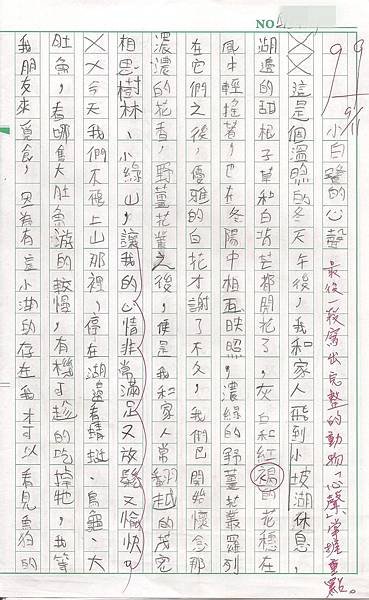 NO
99
9/11
小白鷺的心聲
最後一段寫出完整的動物「心聲」掌握重點。
╳╳這是個溫煦的冬天午後，我和家人飛到小坡湖休息，
湖邊的甜根子草和白背芒都開花了，灰白和紅褐的花穗在
風中輕搖著，也在冬陽中相互映照，濃綠的野薑花叢羅列
在它們之後，優雅的白花才謝了不久，我們已開始懷念那
濃濃的花香，野薑花叢之後，便是我和家人常翻越的茂密
相思樹林、小綠山，讓我的心情非常滿足又放鬆又愉快。
╳╳今天我們不飛上山那裡，停在湖邊看蜻蜓、烏龜、大
肚魚，看哪隻大肚魚游的較慢，有機可趁的吃掉牠，我等
我朋友來覓食，因為有這小湖的存在我才可以看見魚狗的